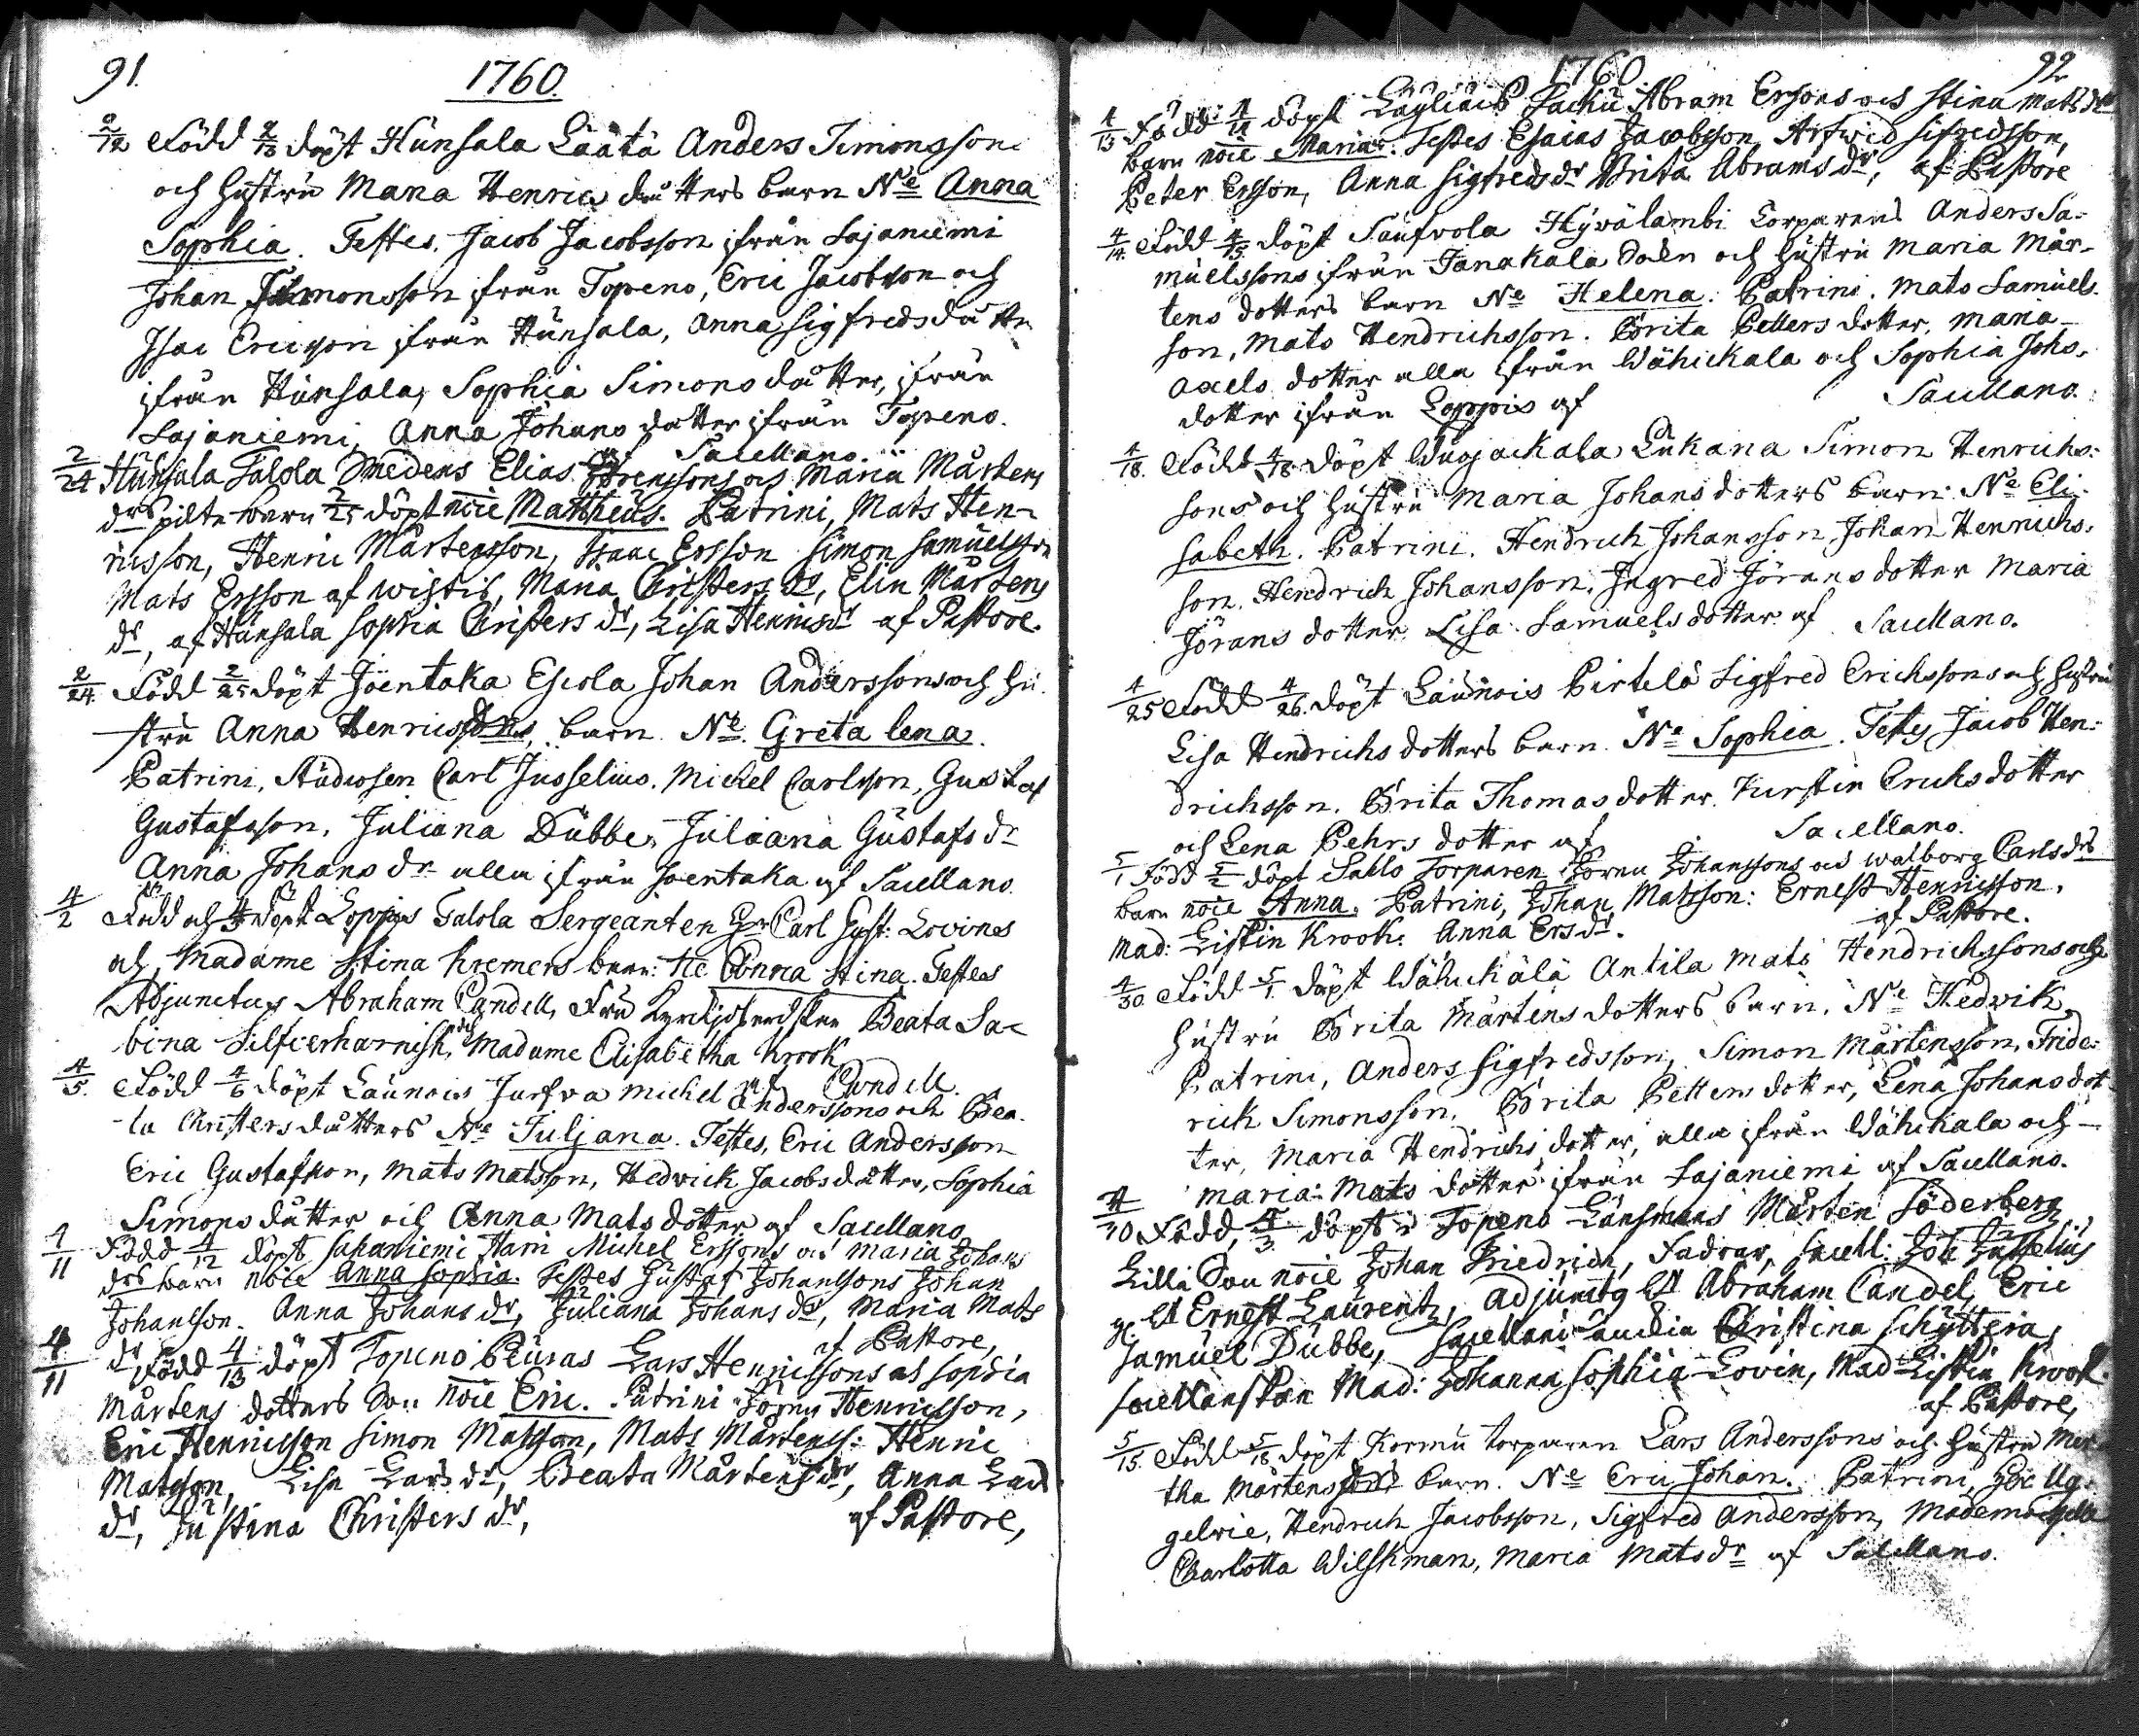 91.
1760.
2/12 Född 2/13 döpt Hünsala Läätä Anders Simonsson
och hustru Maria Henrics dåtters barn Ne Anna
Sophia. Testes. Jacob Jacobsson ifrån Lajaniemi
Johan Simonsson ifrån Topeno, Eric Jacobsson och
Isac Ericsson ifrån Hünsala, Anna Sigfreds dåtter
ifrån Hünsala, Sophia Simons dåtter, ifrån
Lajaniemi, Anna Johans dotter ifrån Topeno.
af Sacellano.
2/24 Hünsala Talola Smedens Elias Jörenssons och Maria Mårtens
drs pilte barn 2/25 döpt noïe Mattheus. Patrini, Mats Hen-
ricsson, Henric Mårtensson, Isaac Ersson Simon Samuelsson
Mats Ersson af Wistis, Maria Christers dr, Elin Mårtens
dr, af Hünsala Sophia Christers dr, Lisa Henricsdr af Pastore.
2/24. Född 2/25 döpt Joentaka Escola Johan Anderssons och hu-
stru Anna Henrics drs, barn. Ne. Greta lena.
Patrini, Studiosen Carl Jusselius. Michel Carlsson, Gustaf
Gustafsson, Juliana Dübbe, Juliana Gustafs dr
Anna Johans dr alla ifrån Joentaka af Sacellano.
4/2 Född och 4/3 döpt Loppis Talola Sergeanten Hr Carl Gust: Lovines
och Madame Stina Kremers barn: Ne Anna Stina. Testes
Adjunctus Abraham Candell, Fru Kyrckjoherdskan Beata Sa-
bina Silfverharnisk, och Madame Elisabetha Krook
af Candell.
4/5. Född 4/6 döpt Launois Jurfva Michel Anderssons och Bea-
ta Christers dåtters Ne Juljana. Testes, Eric Andersson
Eric Gustafsson, Mats Matsson, Hedwick Jacobs dåtter, Sophia
Simons dåtter och Anna Mats dotter af Sacellano
4/11 Född 4/12 döpt Sakaniemi Harri Michel Erssons och Maria Johans
drs barn noïe Anna Sophia. Testes Gustaf Johanssons Johan
Johansson. Anna Johans dr, Juliana Johans dr, Maria Mats
dr af Pastore,
4/11 Född 4/13 döpt Topeno Peuras Lars Henricssons och Sophia
Mårtens dotters Son noïe Eric. Patrini Jören Henricsson,
Eric Henricsson Simon Matsson, Mats Mårtenss: Henric
Matsson, Lisa Lars dr, Beata Mårtens dr, Anna Lars
dr, Justina Christers dr, af Pastore,
1760.
92
4/13 Född 4/14 döpt Läyliäis Sacku Abram Ersons och Stina Mats drs
barn noïe Maria. Testes Esaias Jacobsson, Arfwid Sifredsson,
Peter Ersson, Anna Sigfreds dr Brita Abrams dr, af Pastore
4/14. Född 4/15 döpt Saufvola Hyvälambi Torparens Anders Sa-
muelssons ifrån Janakala Soken och hustru Maria Mår-
tens dotters barn Ne Helena. Patrini. Mats Samuels-
son, Mats Hendrichsson. Brita Petters dotter, Maria
Axels dotter alla ifrån Wähickala och Sophia Johs.
dotter ifrån Loppis af Sacellano.
4/18. Född 4/18 döpt Wuojackala Lukana Simon Henrichs-
sons och hustru Maria Johans dotters barn. Ne Eli-
sabeth. Patrini. Hendrich Johansson, Johan Henrichs-
son. Hendrich Johansson. Ingred Jörans dotter Maria
Jörans dotter Lisa Samuels dotter af Sacellano.
4/25 Född 4/26. döpt Launois Pirtelä Sigfred Erichssons och hustru
Lisa Hindrichs dotters barn. Ne Sophia. Testes Jacob Hen-
drichsson. Brita Thomas dotter. Kirstin Erichs dotter
och Lena Pehrs dotter af Sacellano.
5/1 Född 5/2 döpt Sahlo Torparen Jören Johanssons och Walborg Carls drs
barn noïe Anna. Patrini, Johan Matsson: Ernest Henricsson.
Mad: Listin Krook: Anna Ers dr. af Pastore.
4/30 Född 5/1 döpt Wähickälä Antila Mats Hendrichssons och
hustru Brita Mårtens dotters barn. Ne Hedvik
Patrini, Anders Sigfredsson, Simon Mårtensson, Fride-
rick Simonsson. Brita Petters dotter, Lena Johans dot-
ter, Maria Hendrichs dotter, alla ifrån Wähickala och
Maria Mats dotter ifrån Lajaniemi af Sacellano.
4/30 Född, 5/3 döpt Topeno Länsmans Mårten Söderberg
Lilla Son noïe Johan Friedrich, Fadrar, Sacell: Joh Jusselius
Ernest Laurentz, Adjunctg Abraham Candel, Eric
Samuel Dübbe, Christina Schyttera,
Sacellanskan Mad: Johanna Sophia Lovin, Mad Listin Krook.
af Pastore,
5/15. Född 5/18 döpt Kormu torparen Lars Anderssons och hustru Mar-
tha Mårtens drs barn. Ne Eric Johan. Patrini, Eric Ug-
gelvie, Hendrich Jacobsson, Sigfred Andersson, Mademoiselle
Charlotta Wilskman, Maria Mats dr af Sacellano.